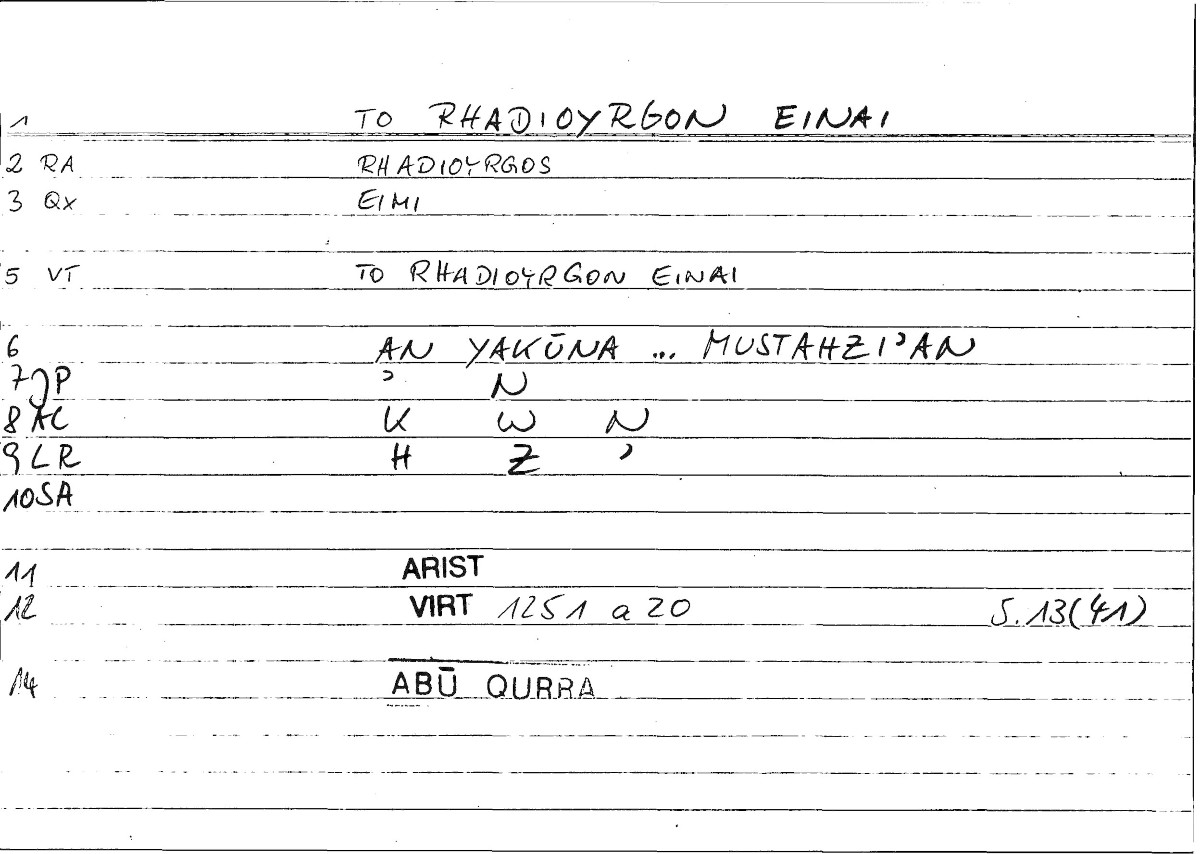 1 TO RHADIOYRGON EINAI
2 RA RHADIOYRGOS
3 Qx EIMI
5 VT TO RHADIOYRGON EINAI
6 AN YAKŪNA ... MUSTAHZI'AN
7 JP ' N
8 AC K W N
9 LR H Z '
10 SA
11 ARIST
12 VIRT 1251 a 20 S. 13(41)
14 ABŪ QURRA